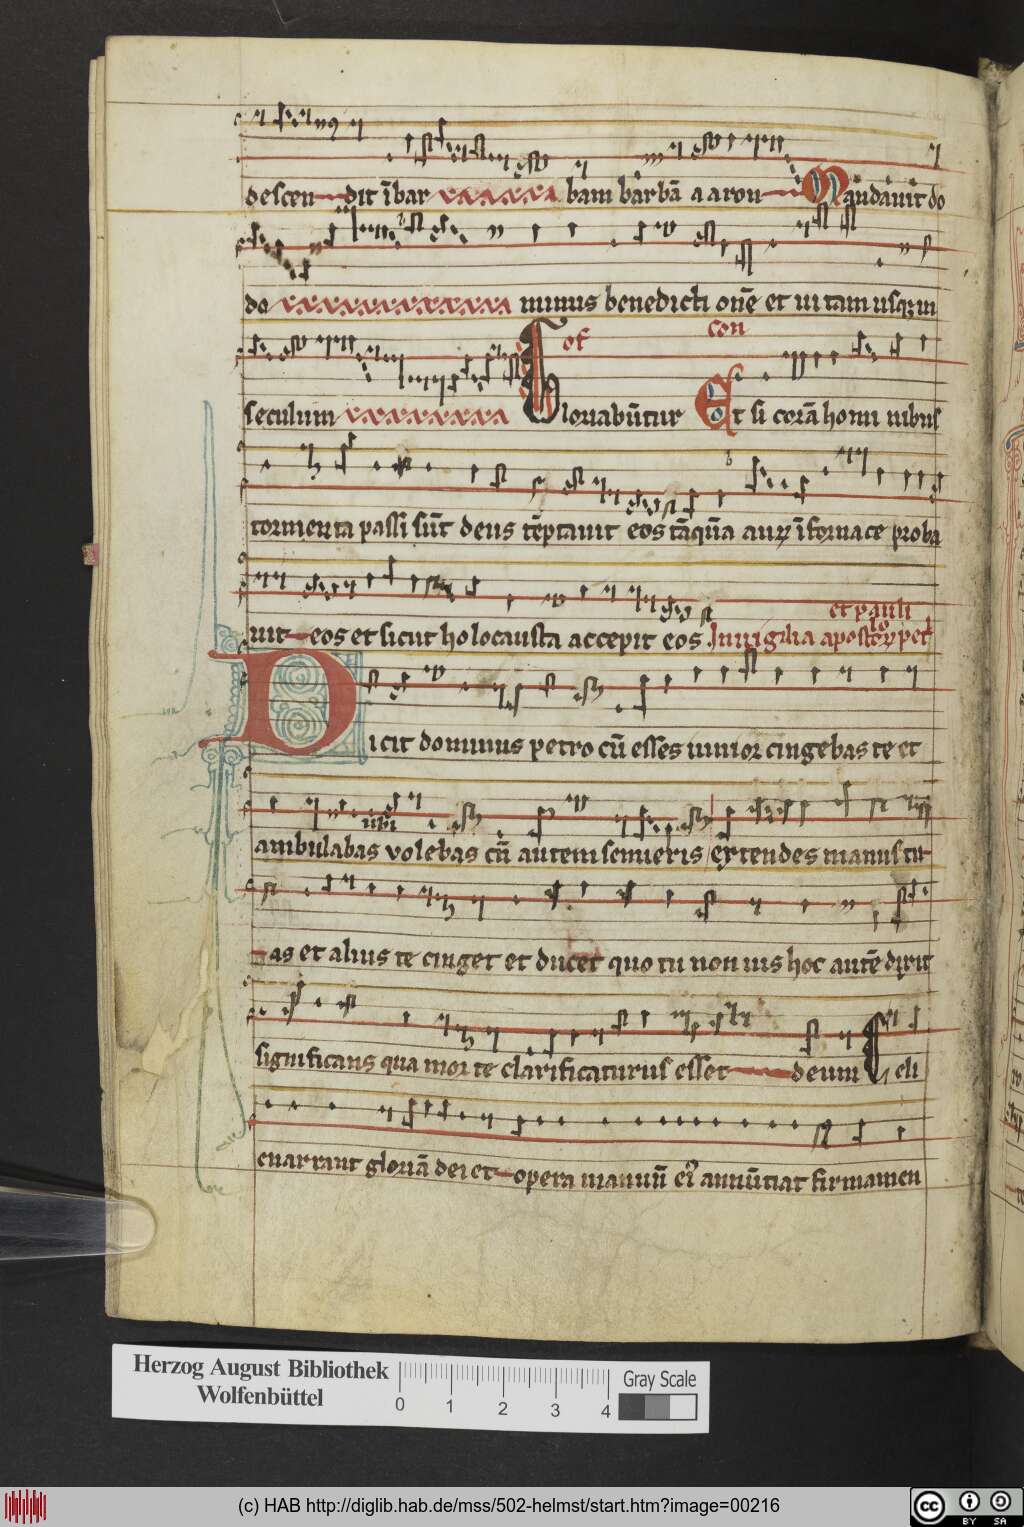 descen dit ī bar bam barbā aaron Mandauit do
do minus benedicti onē et ui tam usqꝫ in
seculum of Gloriabūtur con Et si corā homi nibus
tormenta passi sūt deus tēptauit eos tāqūa auꝝ ī fornace proba
uit eos et sicut holocausta accepit eos et pauli In uigilia apostoloꝝ pet
Dicit dominus petro cū esses iunior cingebas te et
ubi
ambulabas volebas cū autem senueris extendes manus tu
as et alius te cinget et ducet quo tu non uis hoc autē dixit
significans qua morte clarificaturus esset deum Celi
enarrant gloriā dei et opera manuū ei annūtiat firmamen
Herzog August Bibliothek
Wolfenbüttel
0 1 2 3 4
Gray Scale
(c) HAB http://diglib.hab.de/mss/502-helmst/start.htm?image=00216
cc BY SA